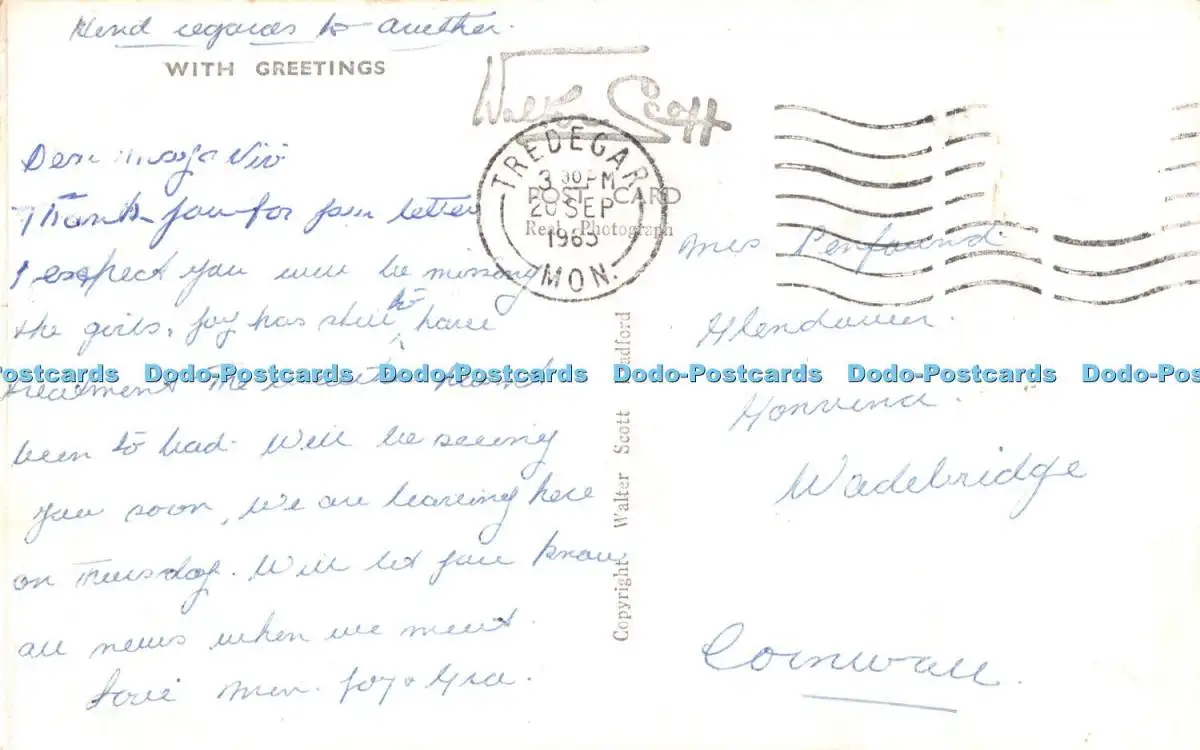 Kind regards to
WITH GREETINGS
Walter Scott
Dear
Thank you for your letter
I expect you will be missing
the girls, Joy has still to have
treatment The weather
been to bad. Will be seeing
you soon, We are leaving here
on Thursday. Will let you know
all news when we meet.
Love Joy &
TREDEGAR
3 30 PM
20 SEP
1963
MON.
POST CARD
Real Photograph
Copyright Walter Scott Bradford
Mrs Penfound
Glendower.
Wadebridge
Cornwall.
Dodo-Postcards Dodo-Postcards Dodo-Postcards Dodo-Postcards Dodo-Postcards Dodo-Postcards